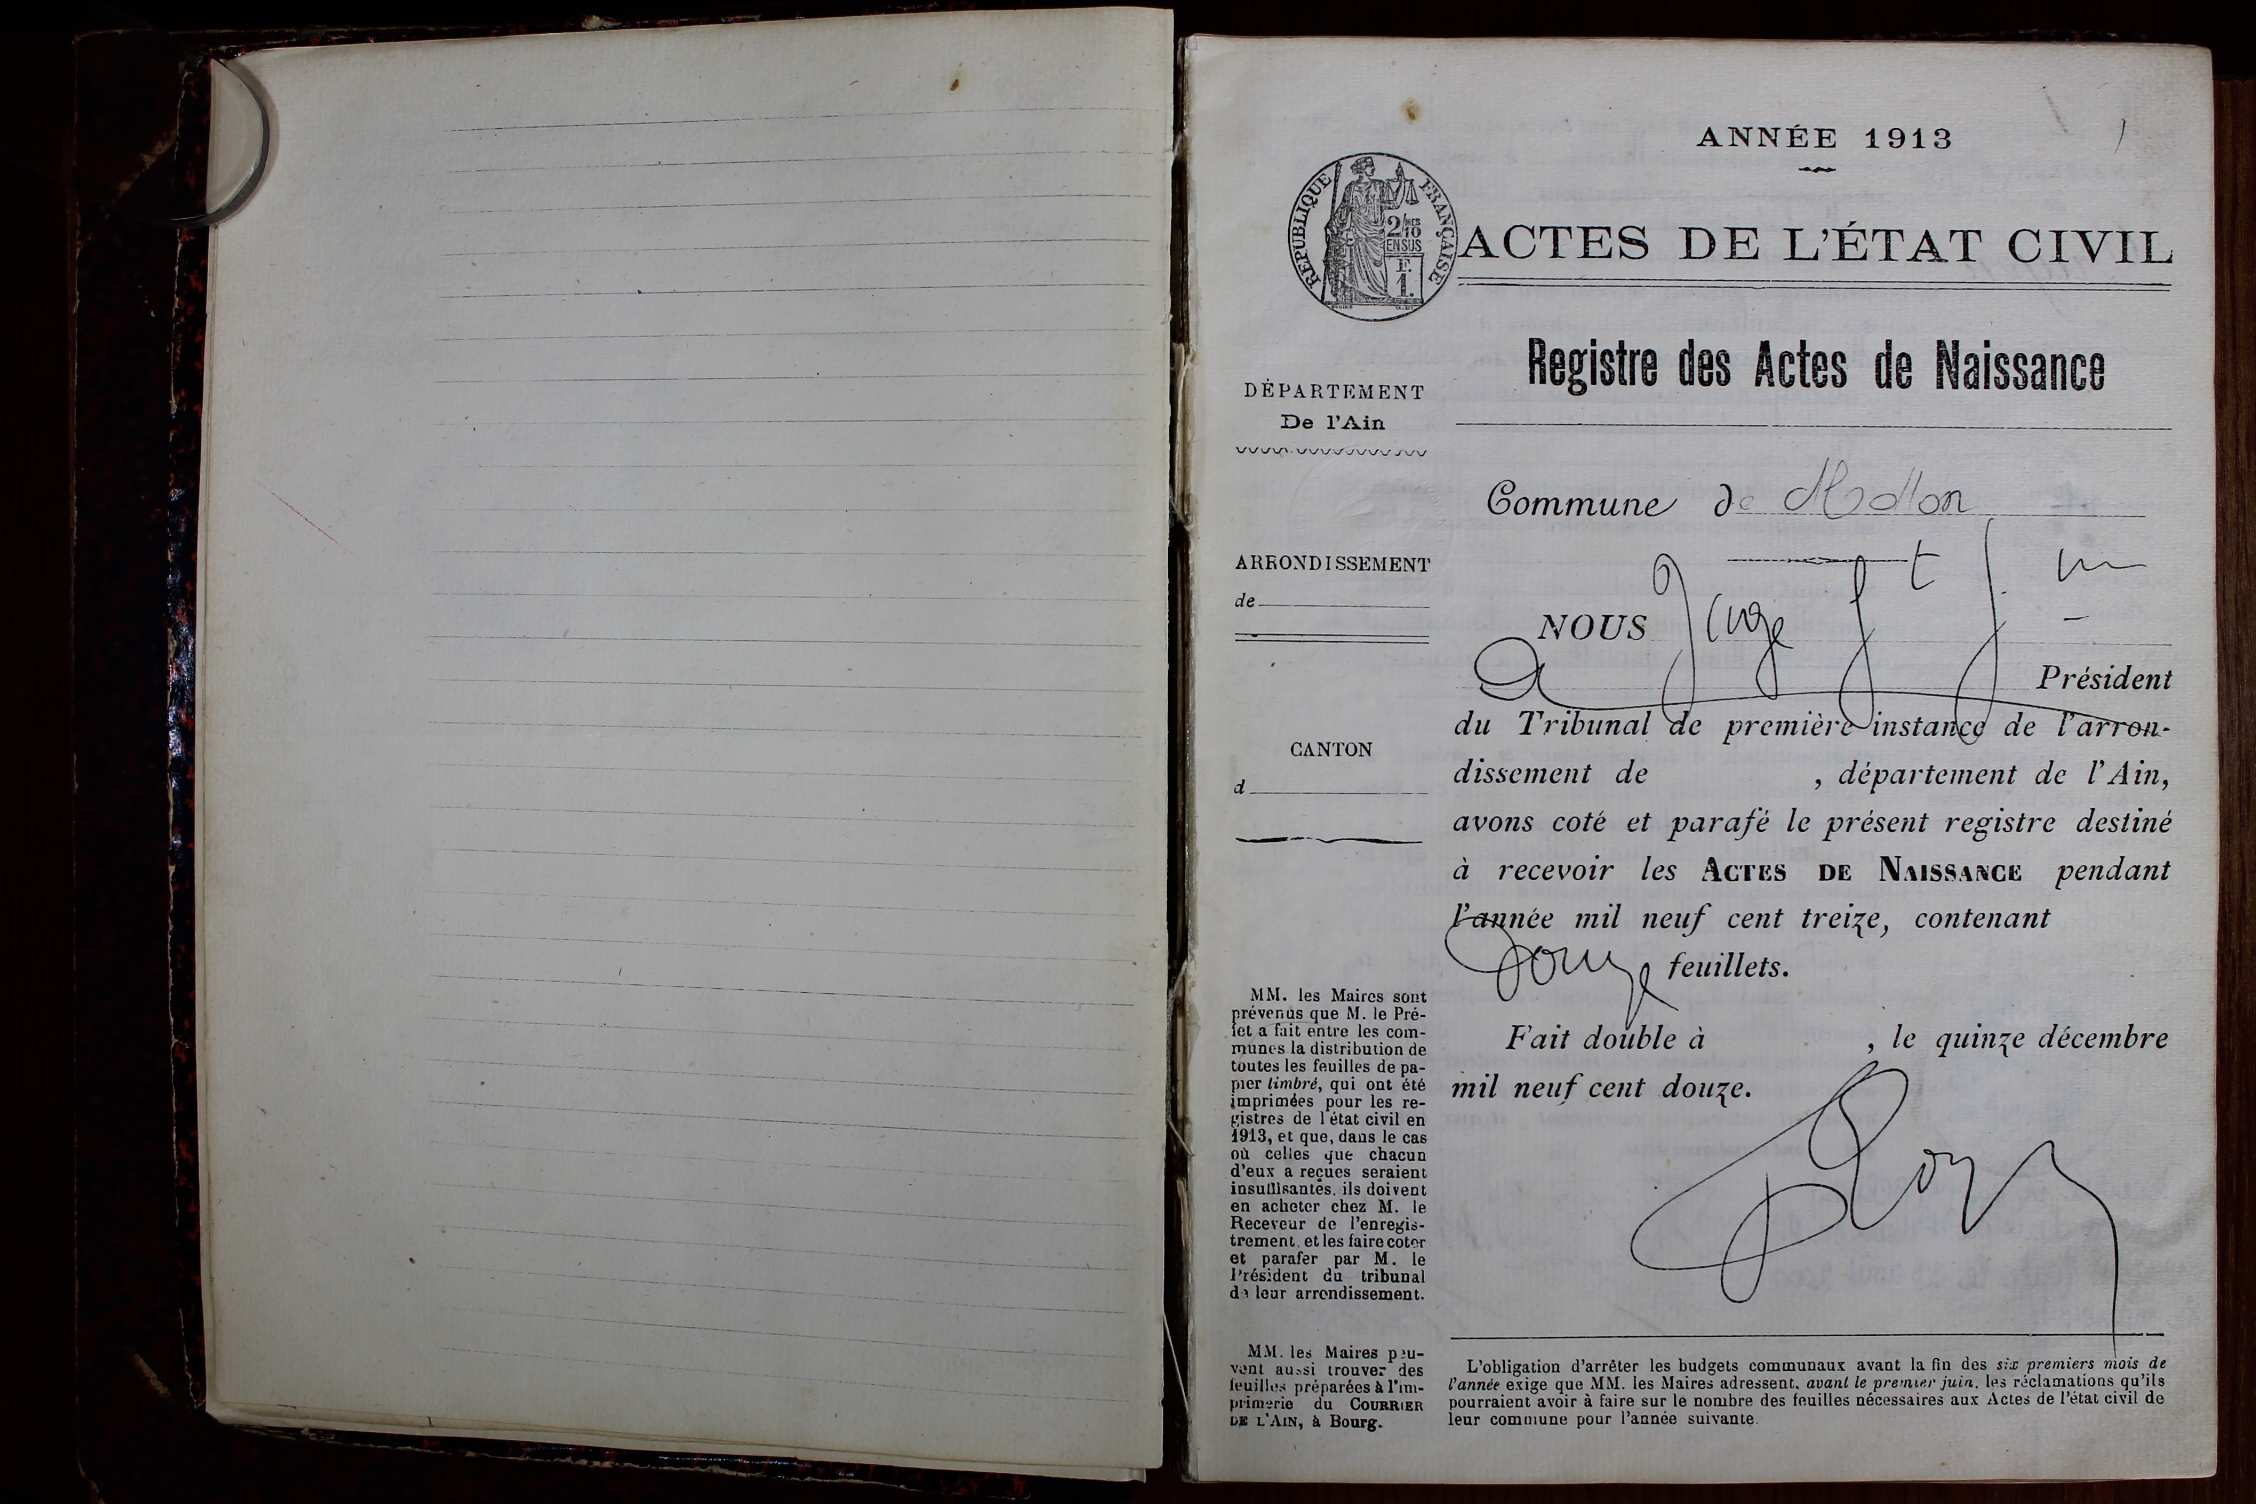 ANNÉE 1913
RÉPUBLIQUE FRANÇAISE
2/10 MES
EN SUS
F.
1.
ACTES DE L'ÉTAT CIVIL
Registre des Actes de Naissance
DÉPARTEMENT
De l'Ain
Commune de Mollon
ARRONDISSEMENT
de
NOUS Juge
Président
du Tribunal de première instance de l'arron-
dissement de , département de l'Ain,
avons coté et parafé le présent registre destiné
à recevoir les ACTES DE NAISSANCE pendant
l'année mil neuf cent treize, contenant
Douze feuillets.
Fait double à , le quinze décembre
mil neuf cent douze.
CANTON
d
MM. les Maires sont
prévenus que M. le Pré-
fet a fait entre les com-
munes la distribution de
toutes les feuilles de pa-
pier timbré, qui ont été
imprimées pour les re-
gistres de l'état civil en
1913, et que, dans le cas
où celles que chacun
d'eux a reçues seraient
insuffisantes, ils doivent
en acheter chez M. le
Receveur de l'enregis-
trement, et les faire coter
et parafer par M. le
Président du tribunal
de leur arrondissement.
MM. les Maires peu-
vent aussi trouver des
feuilles préparées à l'im-
primerie du COURRIER
DE L'AIN, à Bourg.
L'obligation d'arrêter les budgets communaux avant la fin des six premiers mois de
l'année exige que MM. les Maires adressent, avant le premier juin, les réclamations qu'ils
pourraient avoir à faire sur le nombre des feuilles nécessaires aux Actes de l'état civil de
leur commune pour l'année suivante.